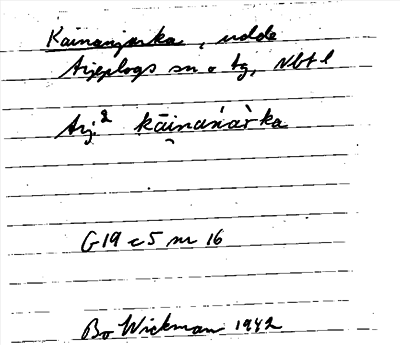 Kainanjarka, udde
Arjeplogs sn o tg, Nbtl
Arj² kāinańařka
G19 c5 nr 16
Bo Wickman 1942